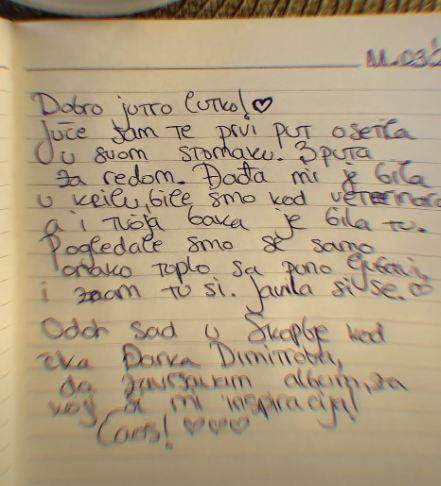 11.03
Dobro jutro lutko! ♡
Juče sam te prvi put osetila
u svom stomaku. 3 puta
za redom. Dada mi je bila
u krilu, bile smo kod veterinara
a i tvoja baka je bila tu.
Pogledale smo se samo
onako toplo sa puno ljubavi,
i znam tu si. Javila si se. ♡
Odoh sad u Skoplje kod
čika Darka Dimitrova,
da završavam album, za
koji si mi inspiracija!
Ćaos! ♡♡♡